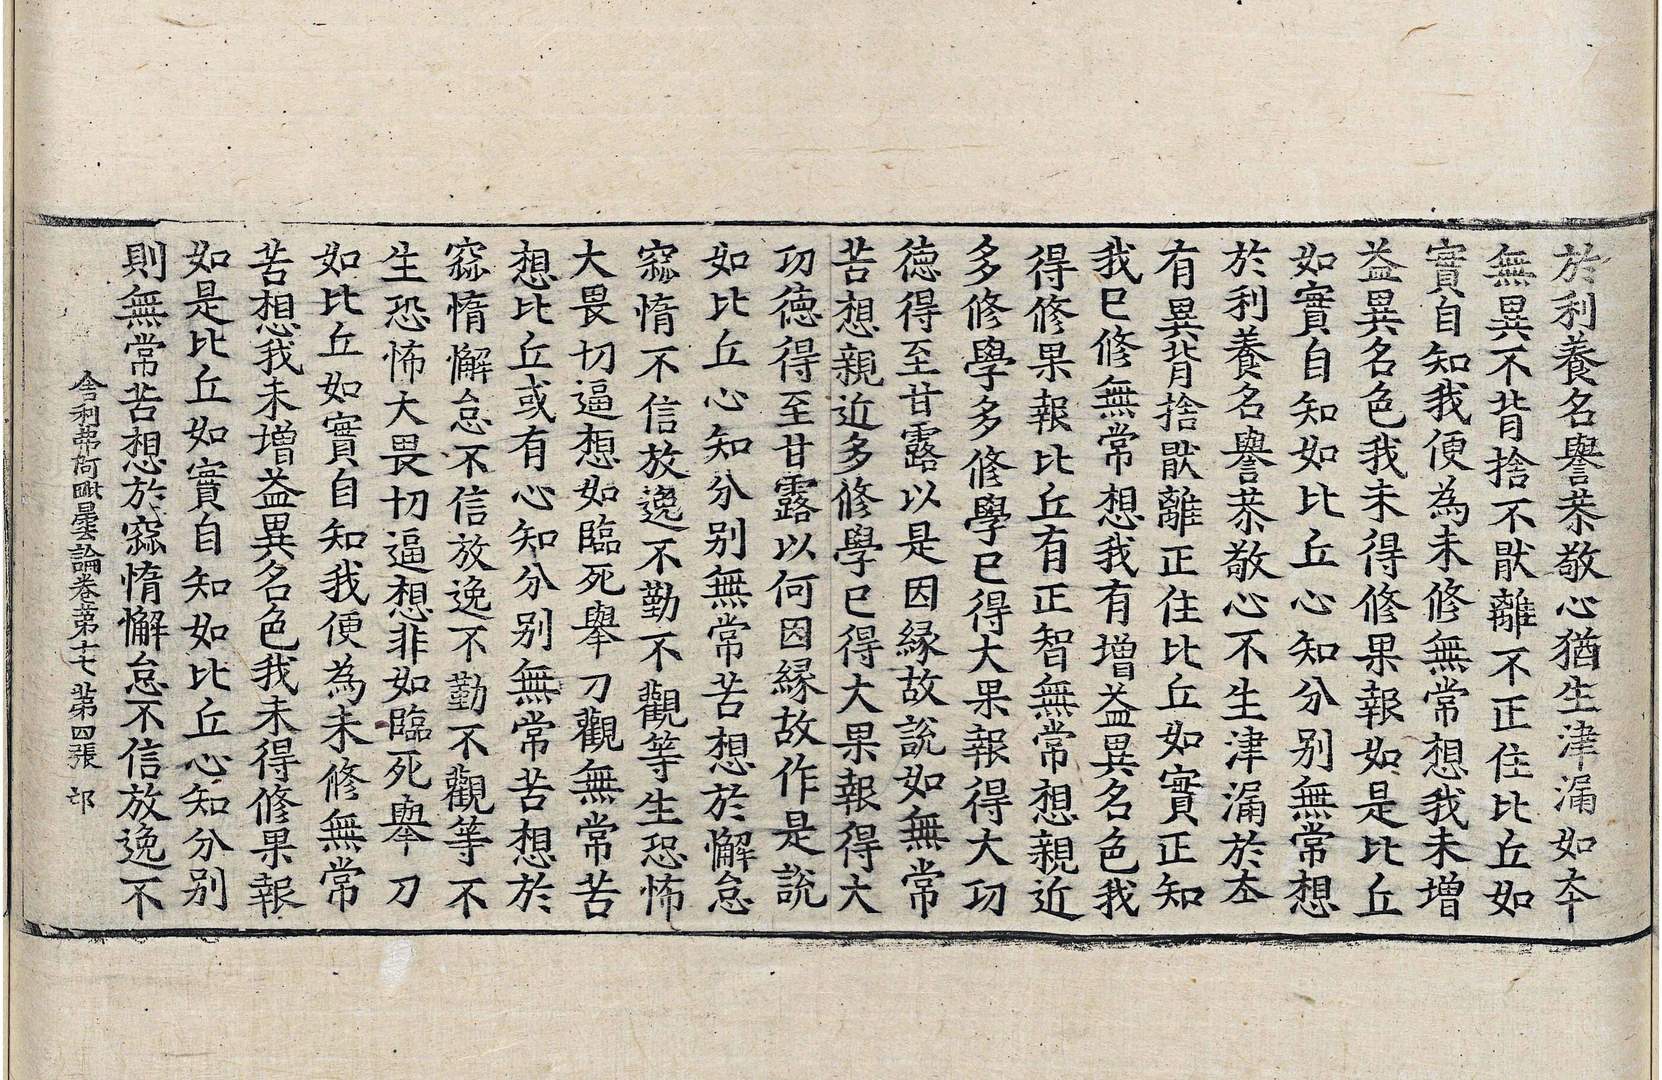 於利養名譽恭敬心猶生津漏如本
無異不背捨不猒離不正住比丘如
實自知我便為未修無常想我未增
益異名色我未得修果報如是比丘
如實自知如比丘心知分别無常想
於利養名譽恭敬心不生津漏於本
有異背捨猒離正住比丘如實正知
我已修無常想我有增益異名色我
得修果報比丘有正智無常想親近
多修學多修學已得大果報得大功
德得至甘露以是因緣故說如無常
苦想親近多修學已得大果報得大
功德得至甘露以何因緣故作是說
如比丘心知分别無常苦想於懈怠
窳惰不信放逸不勤不觀等生恐怖
大畏切逼想如臨死舉刀觀無常苦
想比丘或有心知分别無常苦想於
窳惰懈怠不信放逸不勤不觀等不
生恐怖大畏切逼想非如臨死舉刀
如比丘如實自知我便為未修無常
苦想我未增益異名色我未得修果報
如是比丘如實自知如比丘心知分别
則無常苦想於窳惰懈怠不信放逸不
舍利弗阿毗曇論卷第十七 第四張 邙